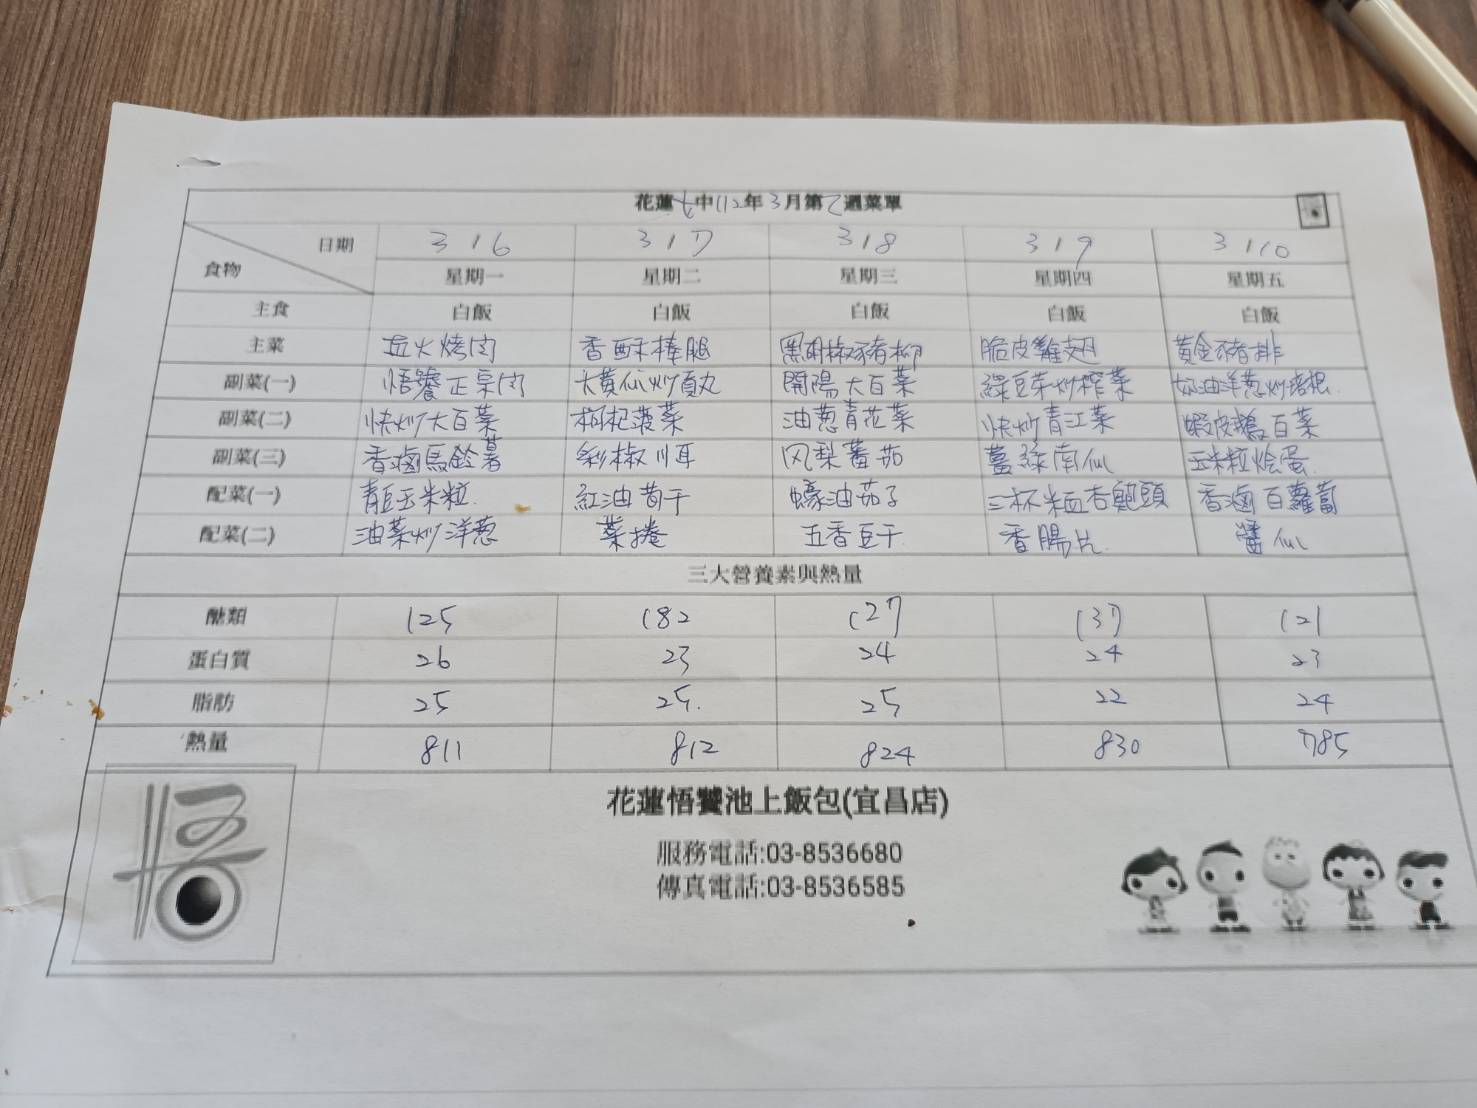 花蓮 中112年3月第2週菜單
日期 3/6 3/7 3/8 3/9 3/10
食物 星期一 星期二 星期三 星期四 星期五
主食 白飯 白飯 白飯 白飯 白飯
主菜 直火烤肉 香酥棒腿 黑胡椒豬柳 脆皮雞翅 黃金豬排
副菜(一) 悟饕正宗肉 大黃瓜炒貢丸 開陽大白菜 綠豆芽炒榨菜 奶油洋蔥炒培根
副菜(二) 快炒大白菜 枸杞菠菜 油蔥青花菜 快炒青江菜 蝦皮鵝白菜
副菜(三) 香滷馬鈴薯 彩椒川耳 风梨蕃茄 薑絲南瓜 玉米粒烩蛋
配菜(一) 青豆玉米粒 紅油筍干 蠔油茄子 三杯米血杏鮑頭 香滷白蘿蔔
配菜(二) 油菜炒洋蔥 菜捲 五香豆干 香腸片 醬瓜
三大營養素與熱量
醣類 125 182 127 137 121
蛋白質 26 23 24 24 23
脂肪 25 25 25 22 24
熱量 811 812 824 830 785
悟
花蓮悟饕池上飯包(宜昌店)
服務電話:03-8536680
傳真電話:03-8536585